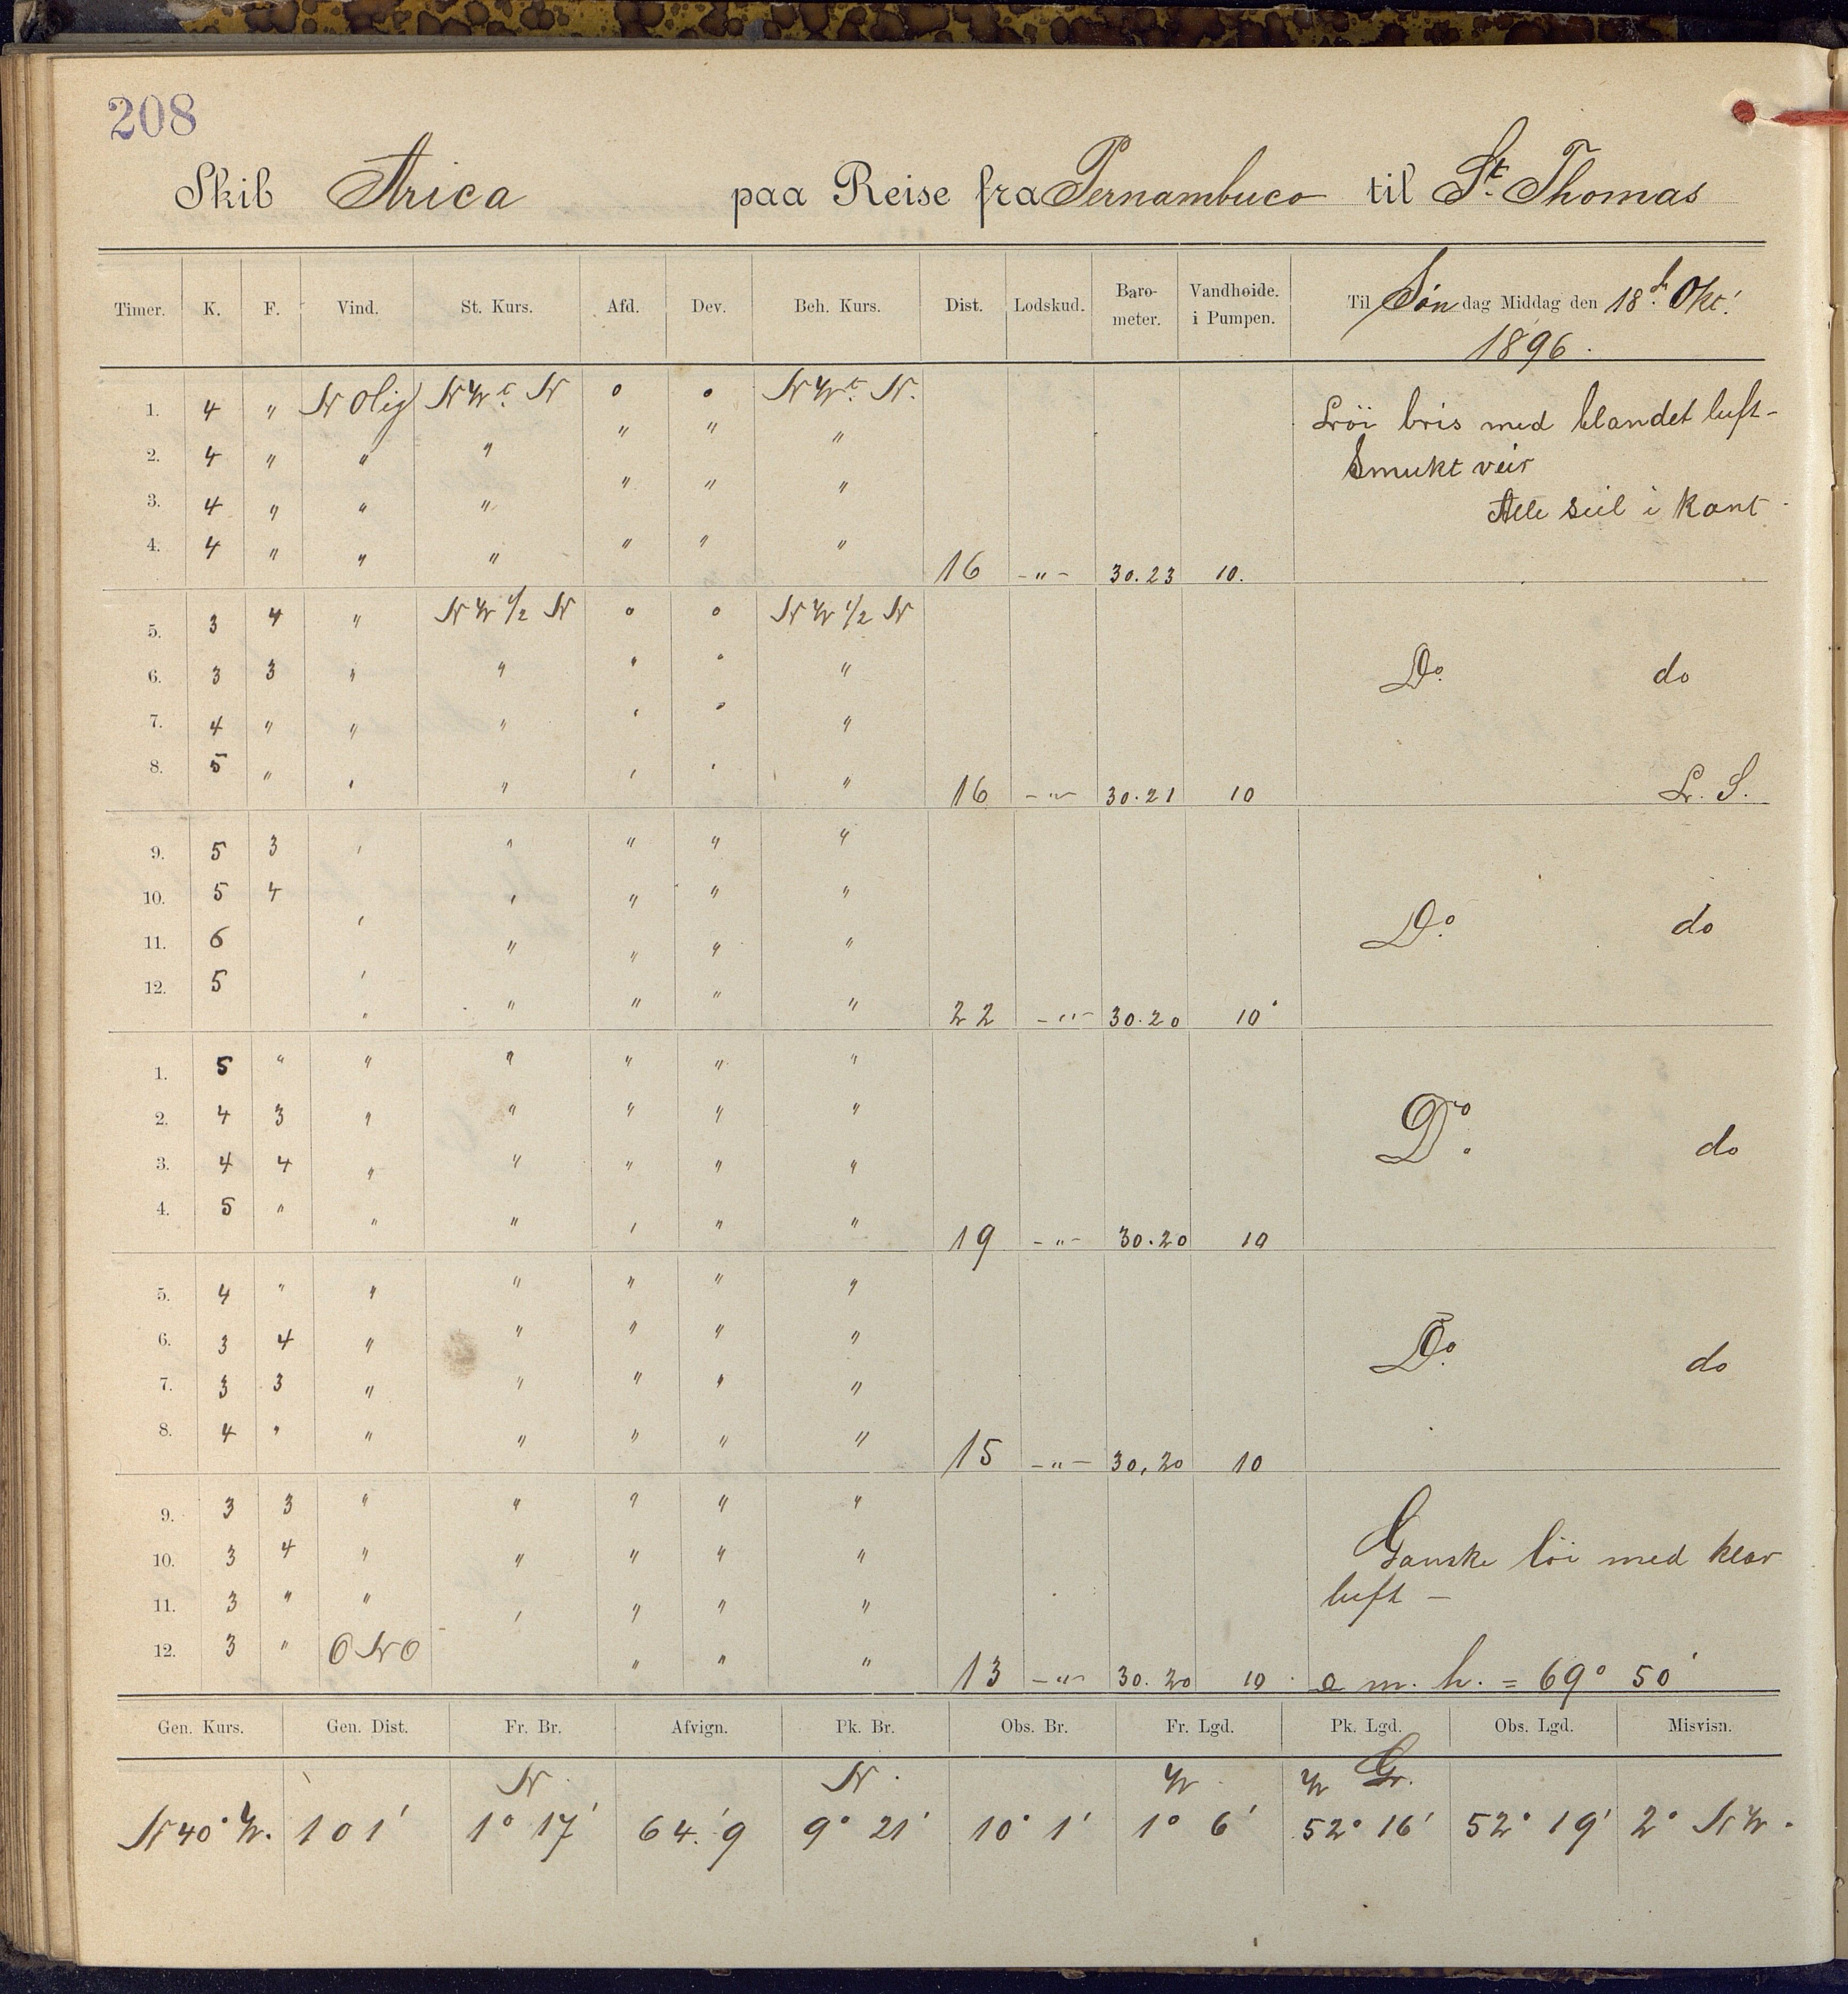 208
Skib Arica paa Reise fra Pernambuco til St. Thomas
Timer. K. F. Vind. St. Kurs. Afd. Dev. Beh. Kurs. Dist. Lodskud. Baro-meter. Vandhøide. i Pumpen. Til Søndag Middag den 18d. Okt.
1896.
1. 4 " N Olig NWt. N 0 0 NWt. N. Løi bris med blandet luft -
2. 4 " " " " " " Smukt veir
3. 4 " " " " " " Alle seil i kant -
4. 4 " " " " " " 16 -"- 30.23 10.
5. 3 4 " NW 1/2 N 0 0 NW 1/2 N
6. 3 3 " " " " " Do. do
7. 4 " " " " " "
8. 5 " " " " " " 16 -"- 30.21 10 L. S.
9. 5 3 " " " " "
10. 5 4 " " " " "
11. 6 " " " " " Do. do
12. 5 " " " " " 22 -"- 30.20 10
1. 5 " " " " " "
2. 4 3 " " " " "
3. 4 4 " " " " " Do. do
4. 5 " " " " " " 19 -"- 30.20 10
5. 4 " " " " " "
6. 3 4 " " " " " Do. do
7. 3 3 " " " " "
8. 4 " " " " " " 15 -"- 30,20 10
9. 3 3 " " " " "
10. 3 4 " " " " " Ganske löi med klar
11. 3 " " " " " " luft -
12. 3 " ONO " " " 13 -"- 30.20 10 m. h. = 69° 50'
Gen. Kurs. Gen. Dist. Fr. Br. Afvign. Pk. Br. Obs. Br. Fr. Lgd. Pk. Lgd. Obs. Lgd. Misvisn.
N. N. W. W Gr.
N 40° W. 101' 1° 17' 64.'9 9° 21' 10° 1' 1° 6' 52° 16' 52° 19' 2° NW.